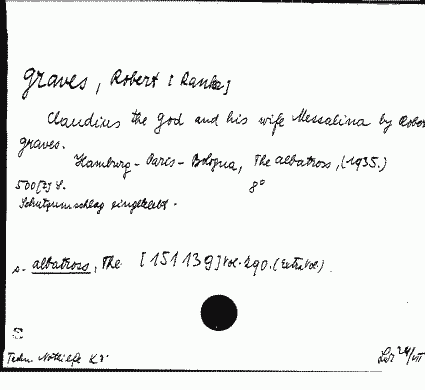 Graves, Robert [Ranke]
Claudius the god and his wife Messalina by Robert
Graves.
Hamburg-Paris-Bologna, The albatross, (1935.)
500[2] S. 8°
Schutzumschlag eingeklebt.
s. albatross, The [151139] Vol. 290. (Extra Vol.)
Techn. Nothilfe K.